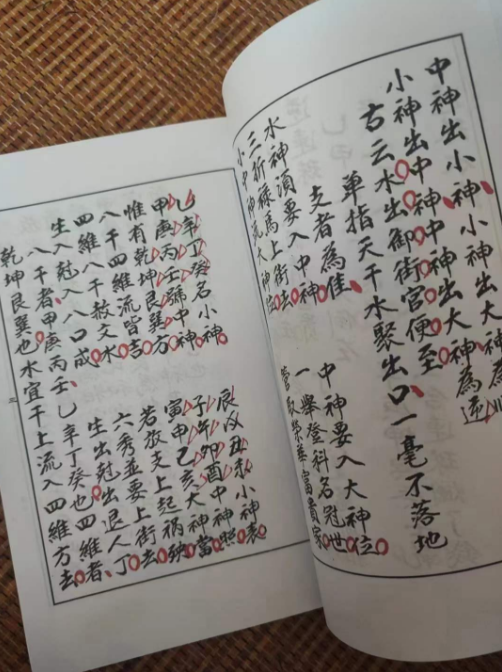 中神出小神、
小神出中神、中神出大神為逆
古云水出御街官便至
單指天干水聚出口一毫不落地
支者為佳、
水神須要入中神 中神要入大神位
三折祿馬上街去 一舉登科名冠世
小中神流大神位 管取榮華富貴家
乙辛丁癸名小神 辰戌丑未小神表
甲庚丙壬號中神 子午卯酉中神照
惟有乾坤艮巽方 寅申己亥大神當
八干四維流皆吉 若放支上起禍殃
四維八干赦文水 六秀並要上街去
生入尅入人口成 生出尅出退人丁
八干者、甲庚丙壬、乙辛丁癸也四維者、
乾坤艮巽也水宜干上流入四維方去